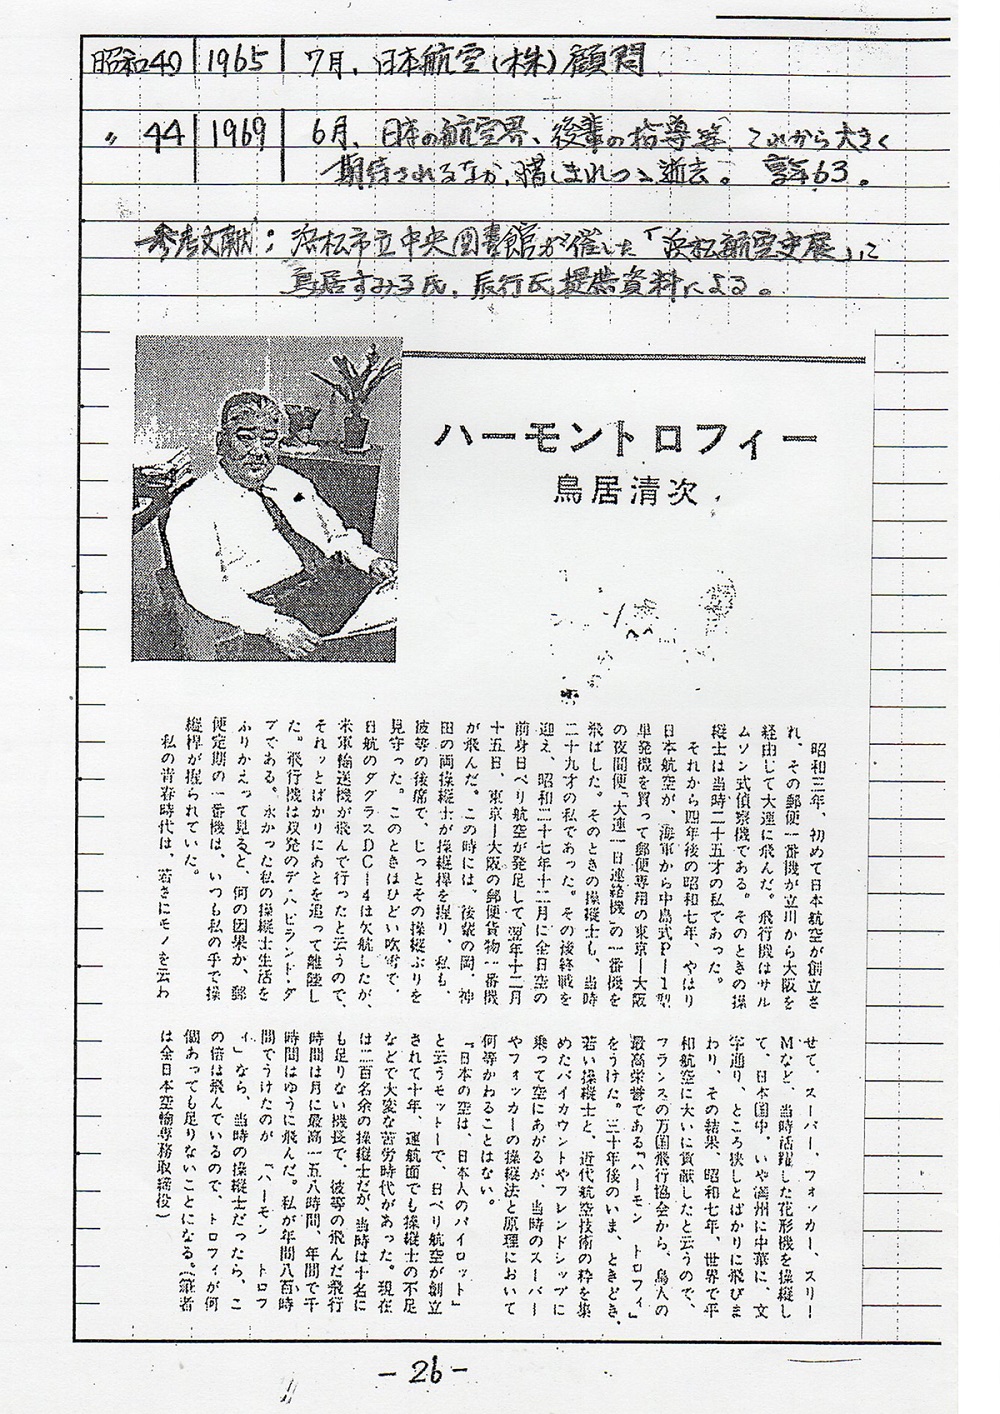 昭和40 1965 7月、日本航空(株)顧問
〃 44 1969 6月、日本の航空界、後輩の指導等、これから大きく
期待されるなか、惜しまれつゝ逝去。享年63。
参考文献：浜松市立中央図書館が催した「浜松航空史展」に
鳥居すみ子氏、辰行氏提供資料による。
ハーモントロフィー
鳥居清次
昭和三年、初めて日本航空が創立さ
れ、その郵便一番機が立川から大阪を
経由して大連に飛んだ。飛行機はサル
ムソン式偵察機である。そのときの操
縦士は当時二十五才の私であった。
それから四年後の昭和七年、やはり
日本航空が、海軍から中島式P―1型
単発機を買って郵便専用の東京―大阪
の夜間便「大連―日連絡機」の一番機を
飛ばした。そのときの操縦士も、当時
二十九才の私であった。その後終戦を
迎え、昭和二十七年十二月に全日空の
前身日ペリ航空が発足して翌年十二月
十五日、東京―大阪の郵便貨物一番機
が飛んだ。この時には、後輩の岡、神
田の両操縦士が操縦桿を握り、私も、
彼等の後席で、じっとその操縦ぶりを
見守った。このときはひどい吹雪で、
日航のダグラスDC―4は欠航したが、
米軍輸送機が飛んで行ったと云うので、
それッとばかりにあとを追って離陸し
た。飛行機は双発のデ・ハビランド・ダ
ブである。永かった私の操縦士生活を
ふりかえって見ると、何の因果か、郵
便定期の一番機は、いつも私の手で操
縦桿が握られていた。
私の青春時代は、若さにモノを云わ
せて、スーパー、フォッカー、スリー
Mなど、当時活躍した花形機を操縦し
て、日本国中、いや満州に中華に、文
字通り、ところ狭しとばかりに飛びま
わり、その結果、昭和七年、世界で平
和航空に大いに貢献したと云うので、
フランスの万国飛行協会から、鳥人の
最高栄誉である「ハーモン トロフィ」
をうけた。三十年後のいま、ときどき、
若い操縦士と、近代航空技術の粋を集
めたバイカウントやフレンドシップに
乗って空にあがるが、当時のスーパー
やフォッカーの操縦法と原理において
何等かわることはない。
『日本の空は、日本人のパイロット』
と云うモットーで、日ペリ航空が創立
されて十年、運航面でも操縦士の不足
などで大変な苦労時代があった。現在
は二百名余の操縦士だが、当時は十名に
も足りない機長で、彼等の飛んだ飛行
時間は月に最高一五八時間、年間で千
時間はゆうに飛んだ。私が年間八百時
間でうけたのが 「ハーモン トロフ
ィ」なら、当時の操縦士だったら、こ
の倍は飛んでいるので、トロフィが何
個あっても足りないことになる。(筆者
は全日本空輸専務取締役)
－26－